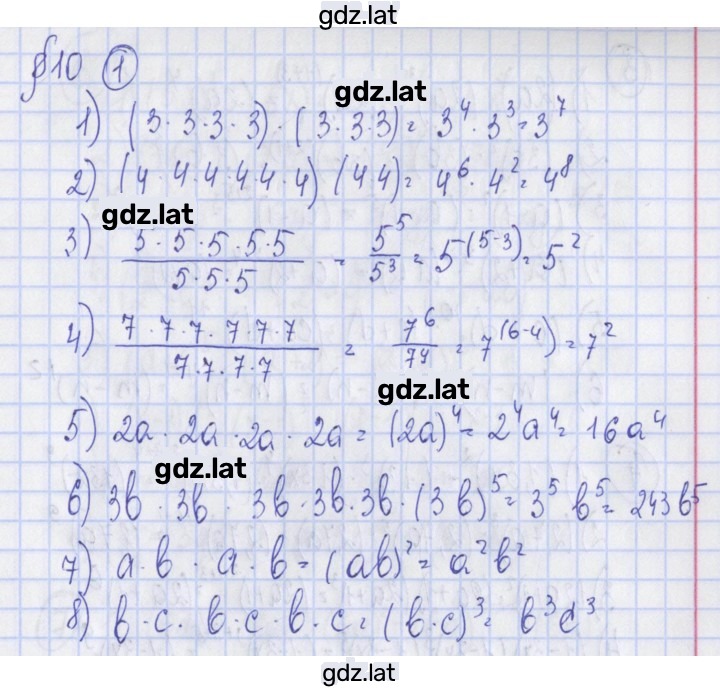 gdz.lat
§10 1
gdz.lat
1) (3·3·3·3)·(3·3·3)= 3⁴·3³=3⁷
2) (4·4·4·4·4·4) (4·4)= 4⁶·4²=4⁸
gdz.lat
3) 5·5·5·5·5 / 5·5·5 = 5⁵/5³ = 5⁽⁵⁻³⁾=5²
4) 7·7·7·7·7·7 / 7·7·7·7 = 7⁶/7⁴ = 7⁽⁶⁻⁴⁾=7²
gdz.lat
5) 2a·2a·2a·2a=(2a)⁴=2⁴a⁴=16a⁴
gdz.lat
6) 3b·3b·3b·3b·3b·(3b)⁵=3⁵b⁵=243b⁵
7) a·b·a·b=(ab)²=a²b²
8) b·c·b·c·b·c=(b·c)³=b³c³
gdz.lat